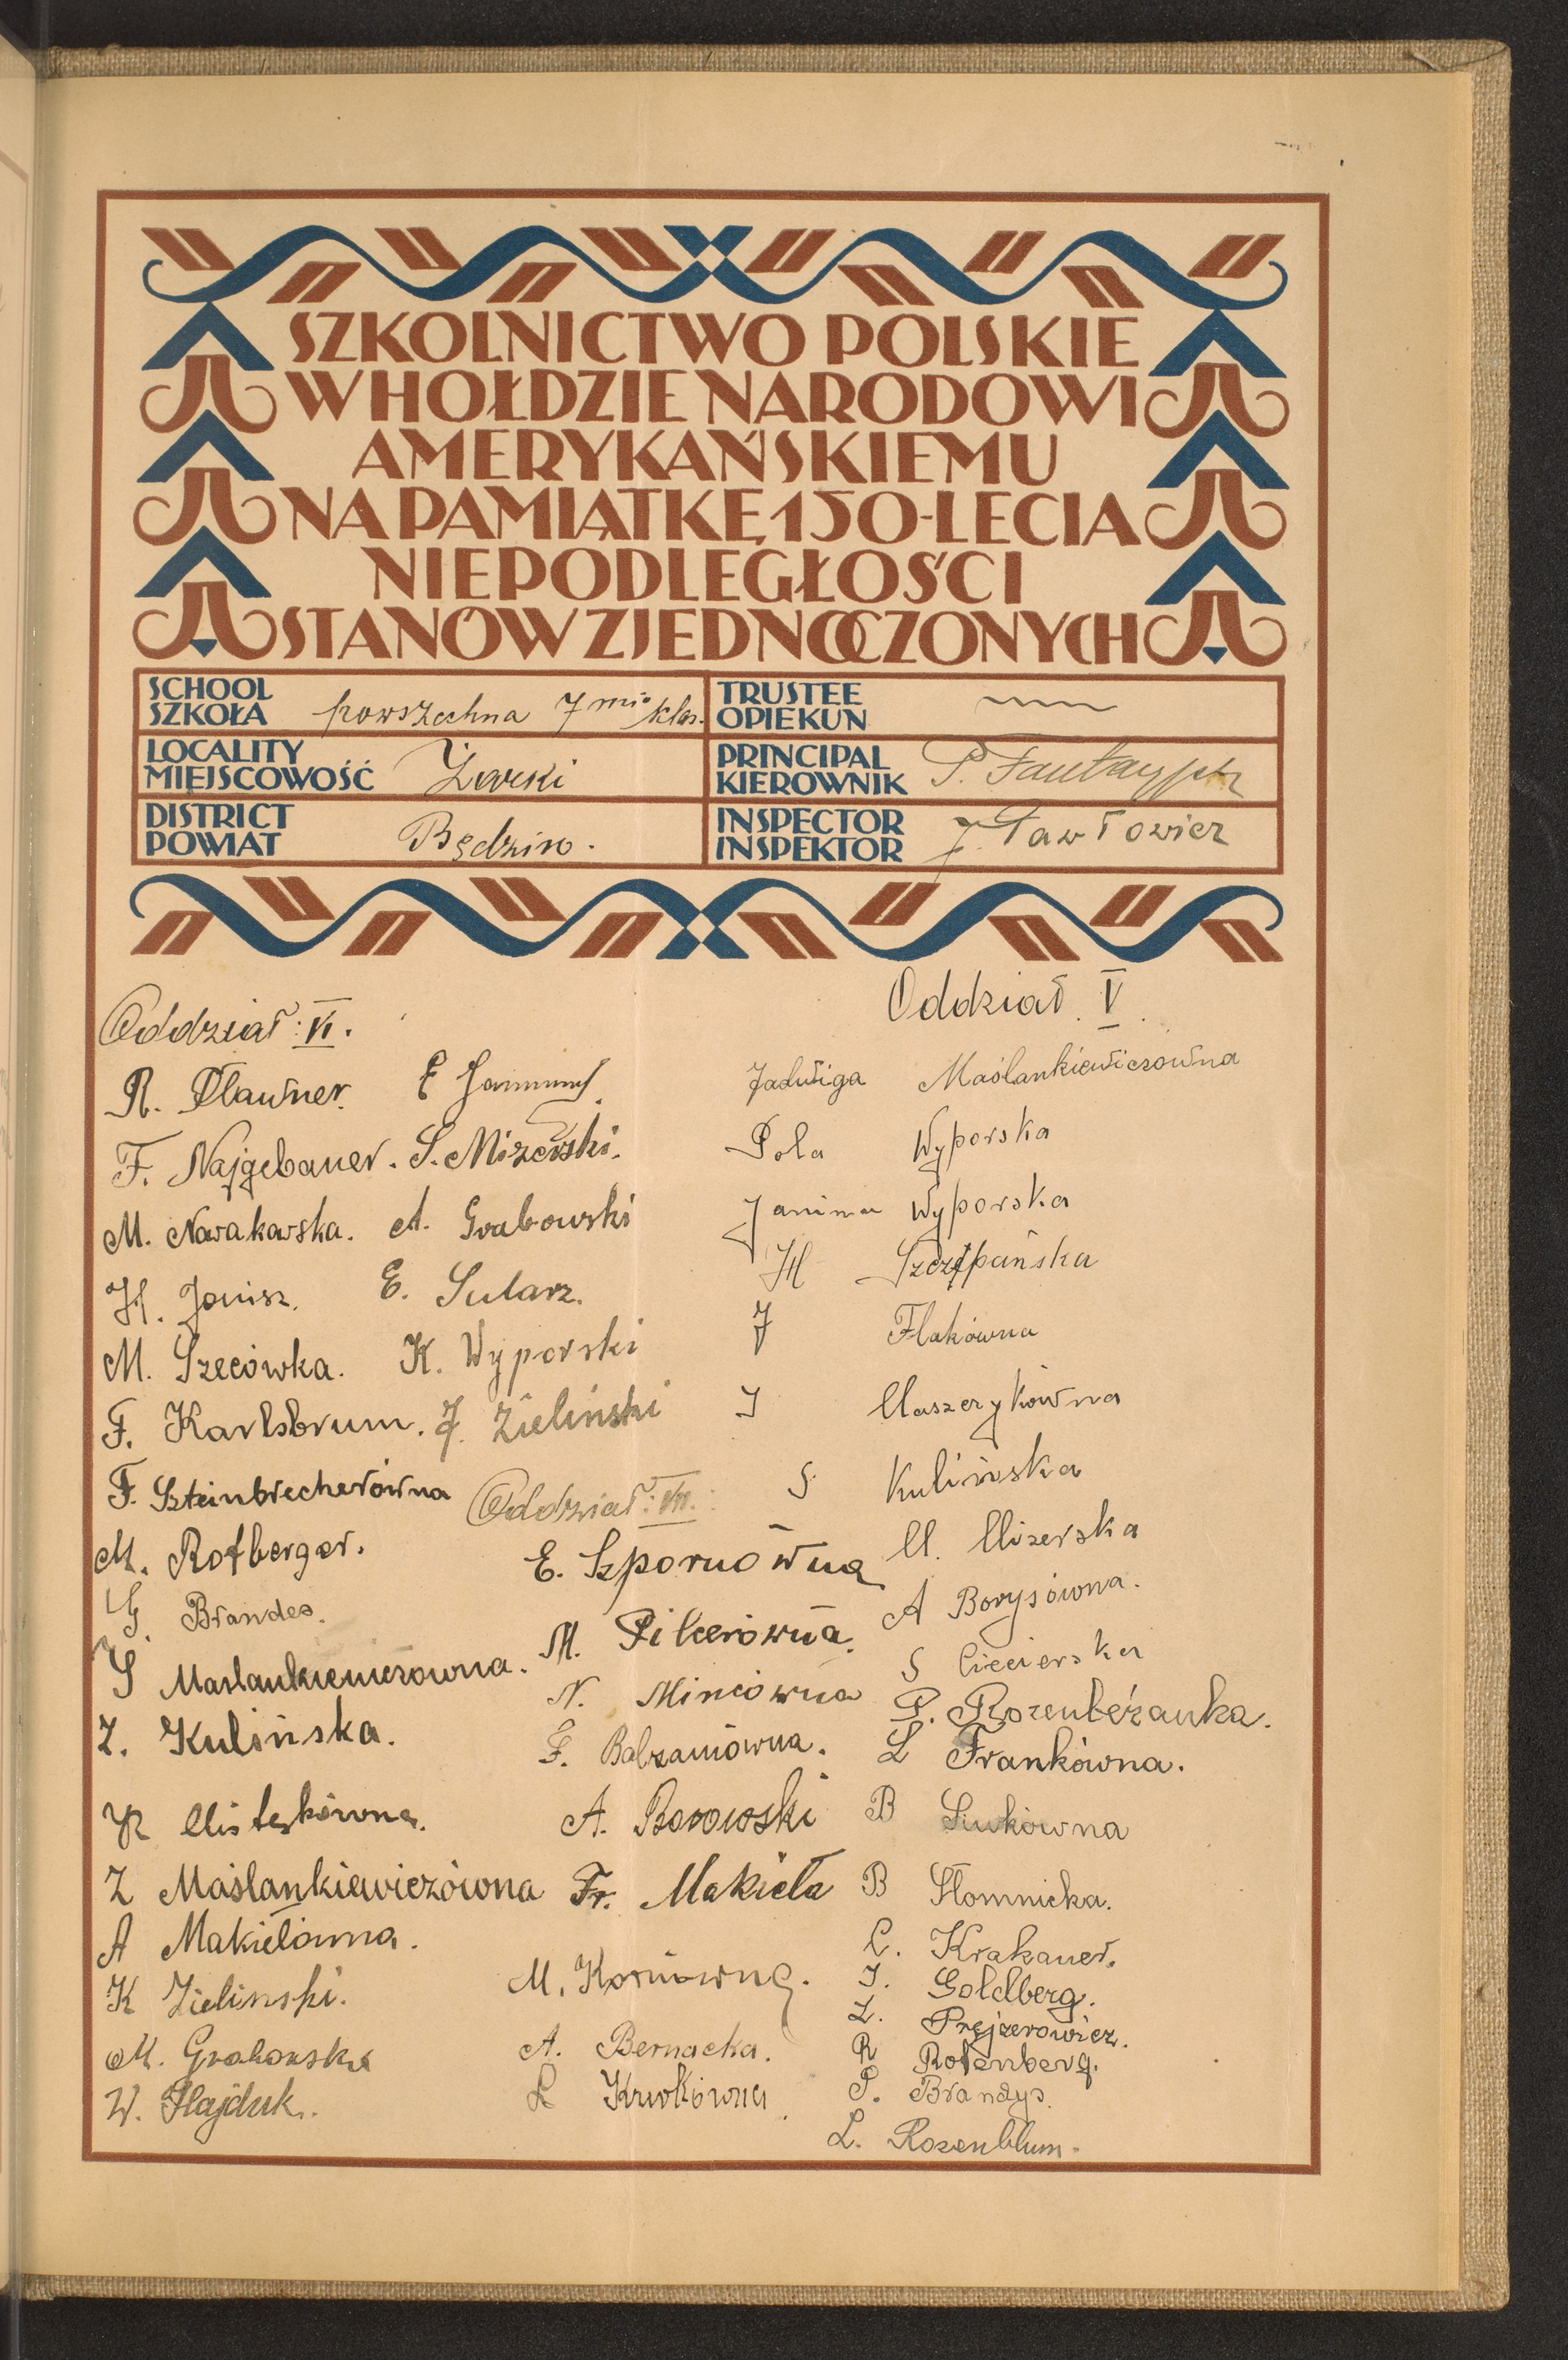 SZKOLNICTWO POLSKIE
W HOŁDZIE NARODOWI
AMERYKAŃSKIEMU
NA PAMIĄTKĘ 150-LECIA
NIEPODLEGŁOŚCI
STANÓW ZJEDNOCZONYCH
SCHOOL
SZKOŁA
powszechna 7mio klas.
TRUSTEE
OPIEKUN
LOCALITY
MIEJSCOWOŚĆ
Żarki
PRINCIPAL
KIEROWNIK
P.
DISTRICT
POWIAT
Będzin.
INSPECTOR
INSPEKTOR
J. Pawłowicz
Oddział: VI.
R. Pławner.
F. Najgebauer.
M. Nowakowska.
H. Janisz.
M. Szecówka.
F. Karlsbrum.
F. Szteinbrecherówna
M. Rotberger.
G. Brandes.
S Maslankiewiczowna.
Z. Kulińska.
R Mistejkówna.
Z Maślankiewiczówna
A Makiełówna.
K Zielinski.
M. Grabowska
W. Hajduk.
E
S. Mizerski.
A. Grabowski
E. Sularz.
K. Wyporski
J. Zieliński
Oddział: VII.
E. Szpornówna
M. Pilcerówna.
N. Mincówna
F. Balsamówna.
A. Borowski
Fr. Makieła
M. Kornówna.
A. Bernacka.
L Krwkówna.
Oddział V.
Jadwiga Maślankiewiczówna
Pola Wyporska
Janina Wyporska
H Szczepańska
J Flakówna
J Maszczykówna
S Kulińska
M. Mizerska
A Borysówna.
S Ciecierska
P. Rozenberżanka.
L Frankówna.
B Siwkówna
B Słomnicka.
C. Krakauer.
J. Goldberg.
L. Prejzerowicz.
R Rotenberg.
P. Brandys.
L. Rozenblum.